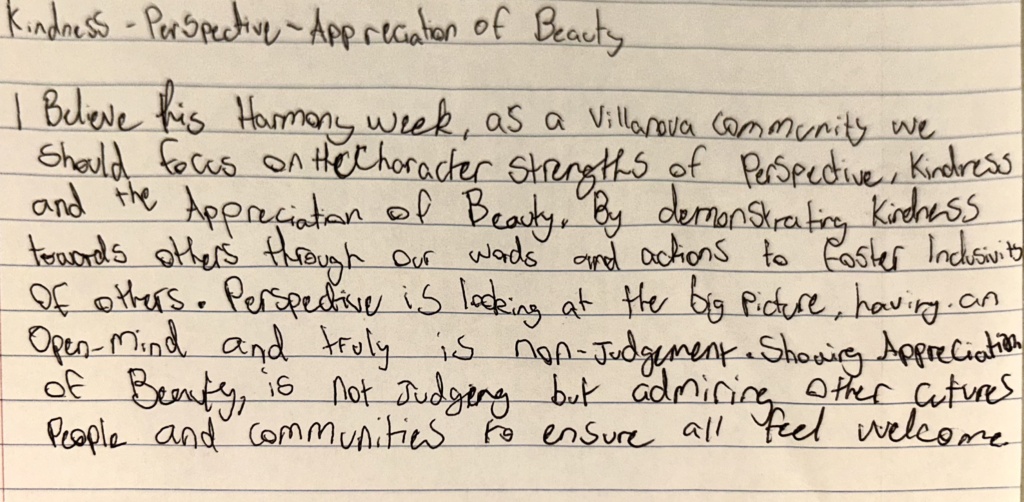 Kindness - Perspective - Appreciation of Beauty
I Believe this Harmony week, as a Villanova community we
should focus on the Character Strengths of Perspective, Kindness
and the Appreciation of Beauty. By demonstrating Kindness
towards others through our words and actions to foster Inclusivity
Of others. Perspective is looking at the big picture, having an
Open-Mind and truly is non-Judgement. Showing Appreciation
of Beauty, is not Judging but admiring other cutures
People and communities to ensure all feel welcome